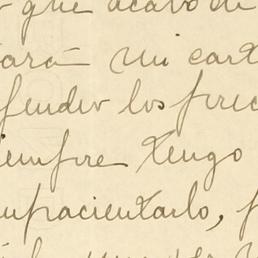 que acabo de
ará mi cart
fender los prec
iempre tengo
mpacientarlo, p